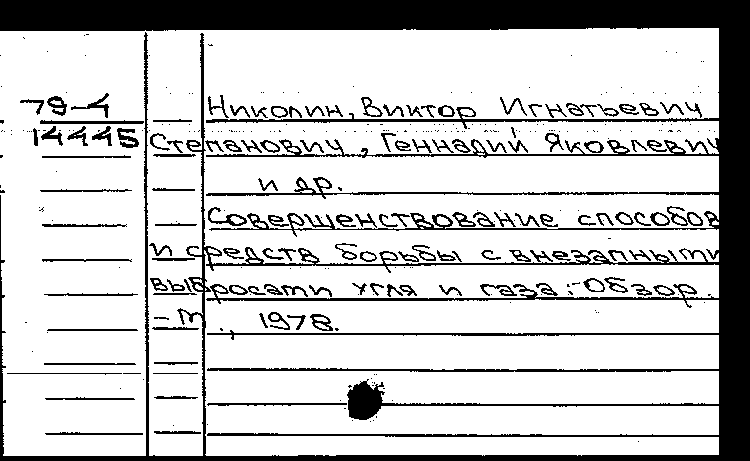 79-4
14445
Николин, Виктор Игнатьевич
Степанович, Геннадий Яковлевич
и др.
Совершенствование способов
и средств борьбы с внезапными
выбросами угля и газа:-Обзор.
- М., 1978.